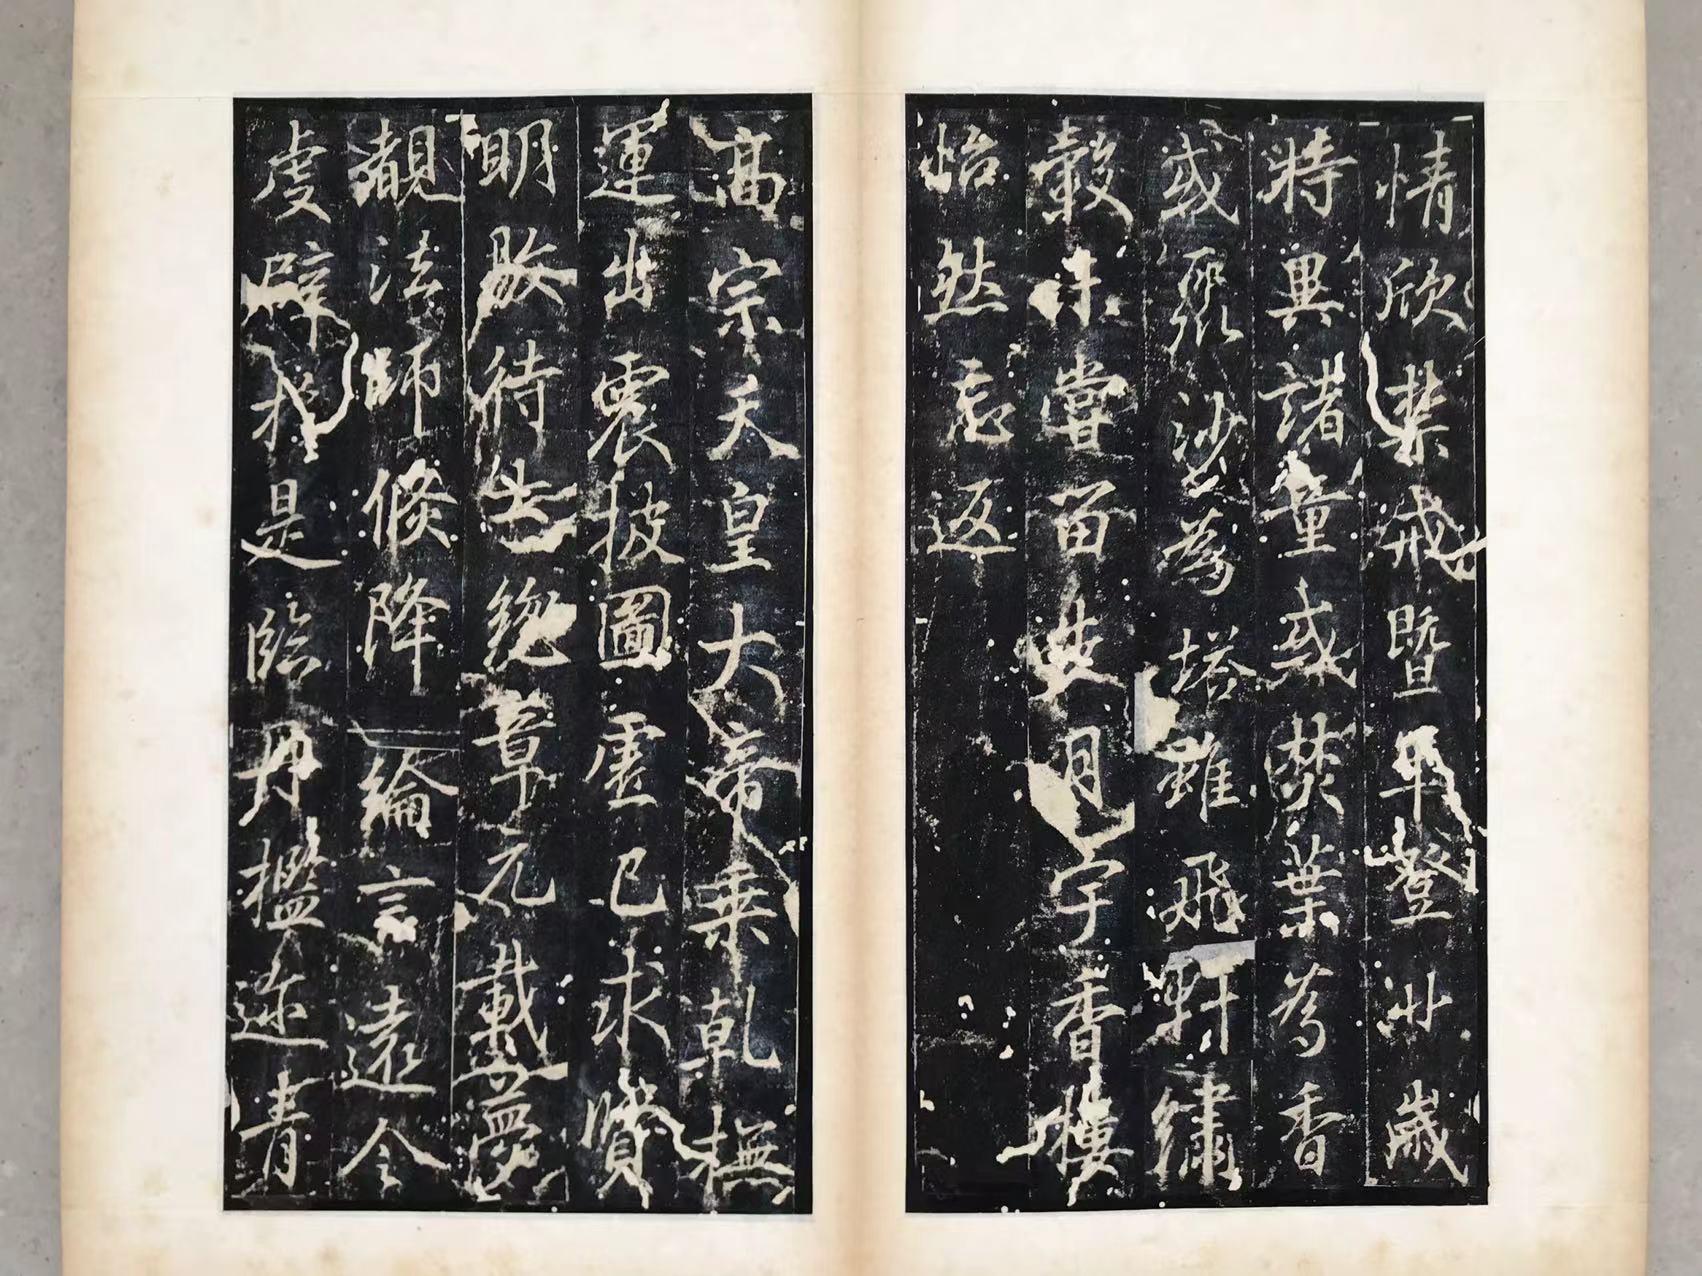 情欣禁戒暨乎登此歲
特異諸童或焚葉爲香
或聚沙爲塔雖飛軒繡
轂未嘗留步月宇香樓
怡然忘返
高宗天皇大帝乘乾撫
運出震披圖虛己求賢
明敭待士緫章元載夢
覩法師倏降綸言遠令
虔辟於是臨丹檻迩青